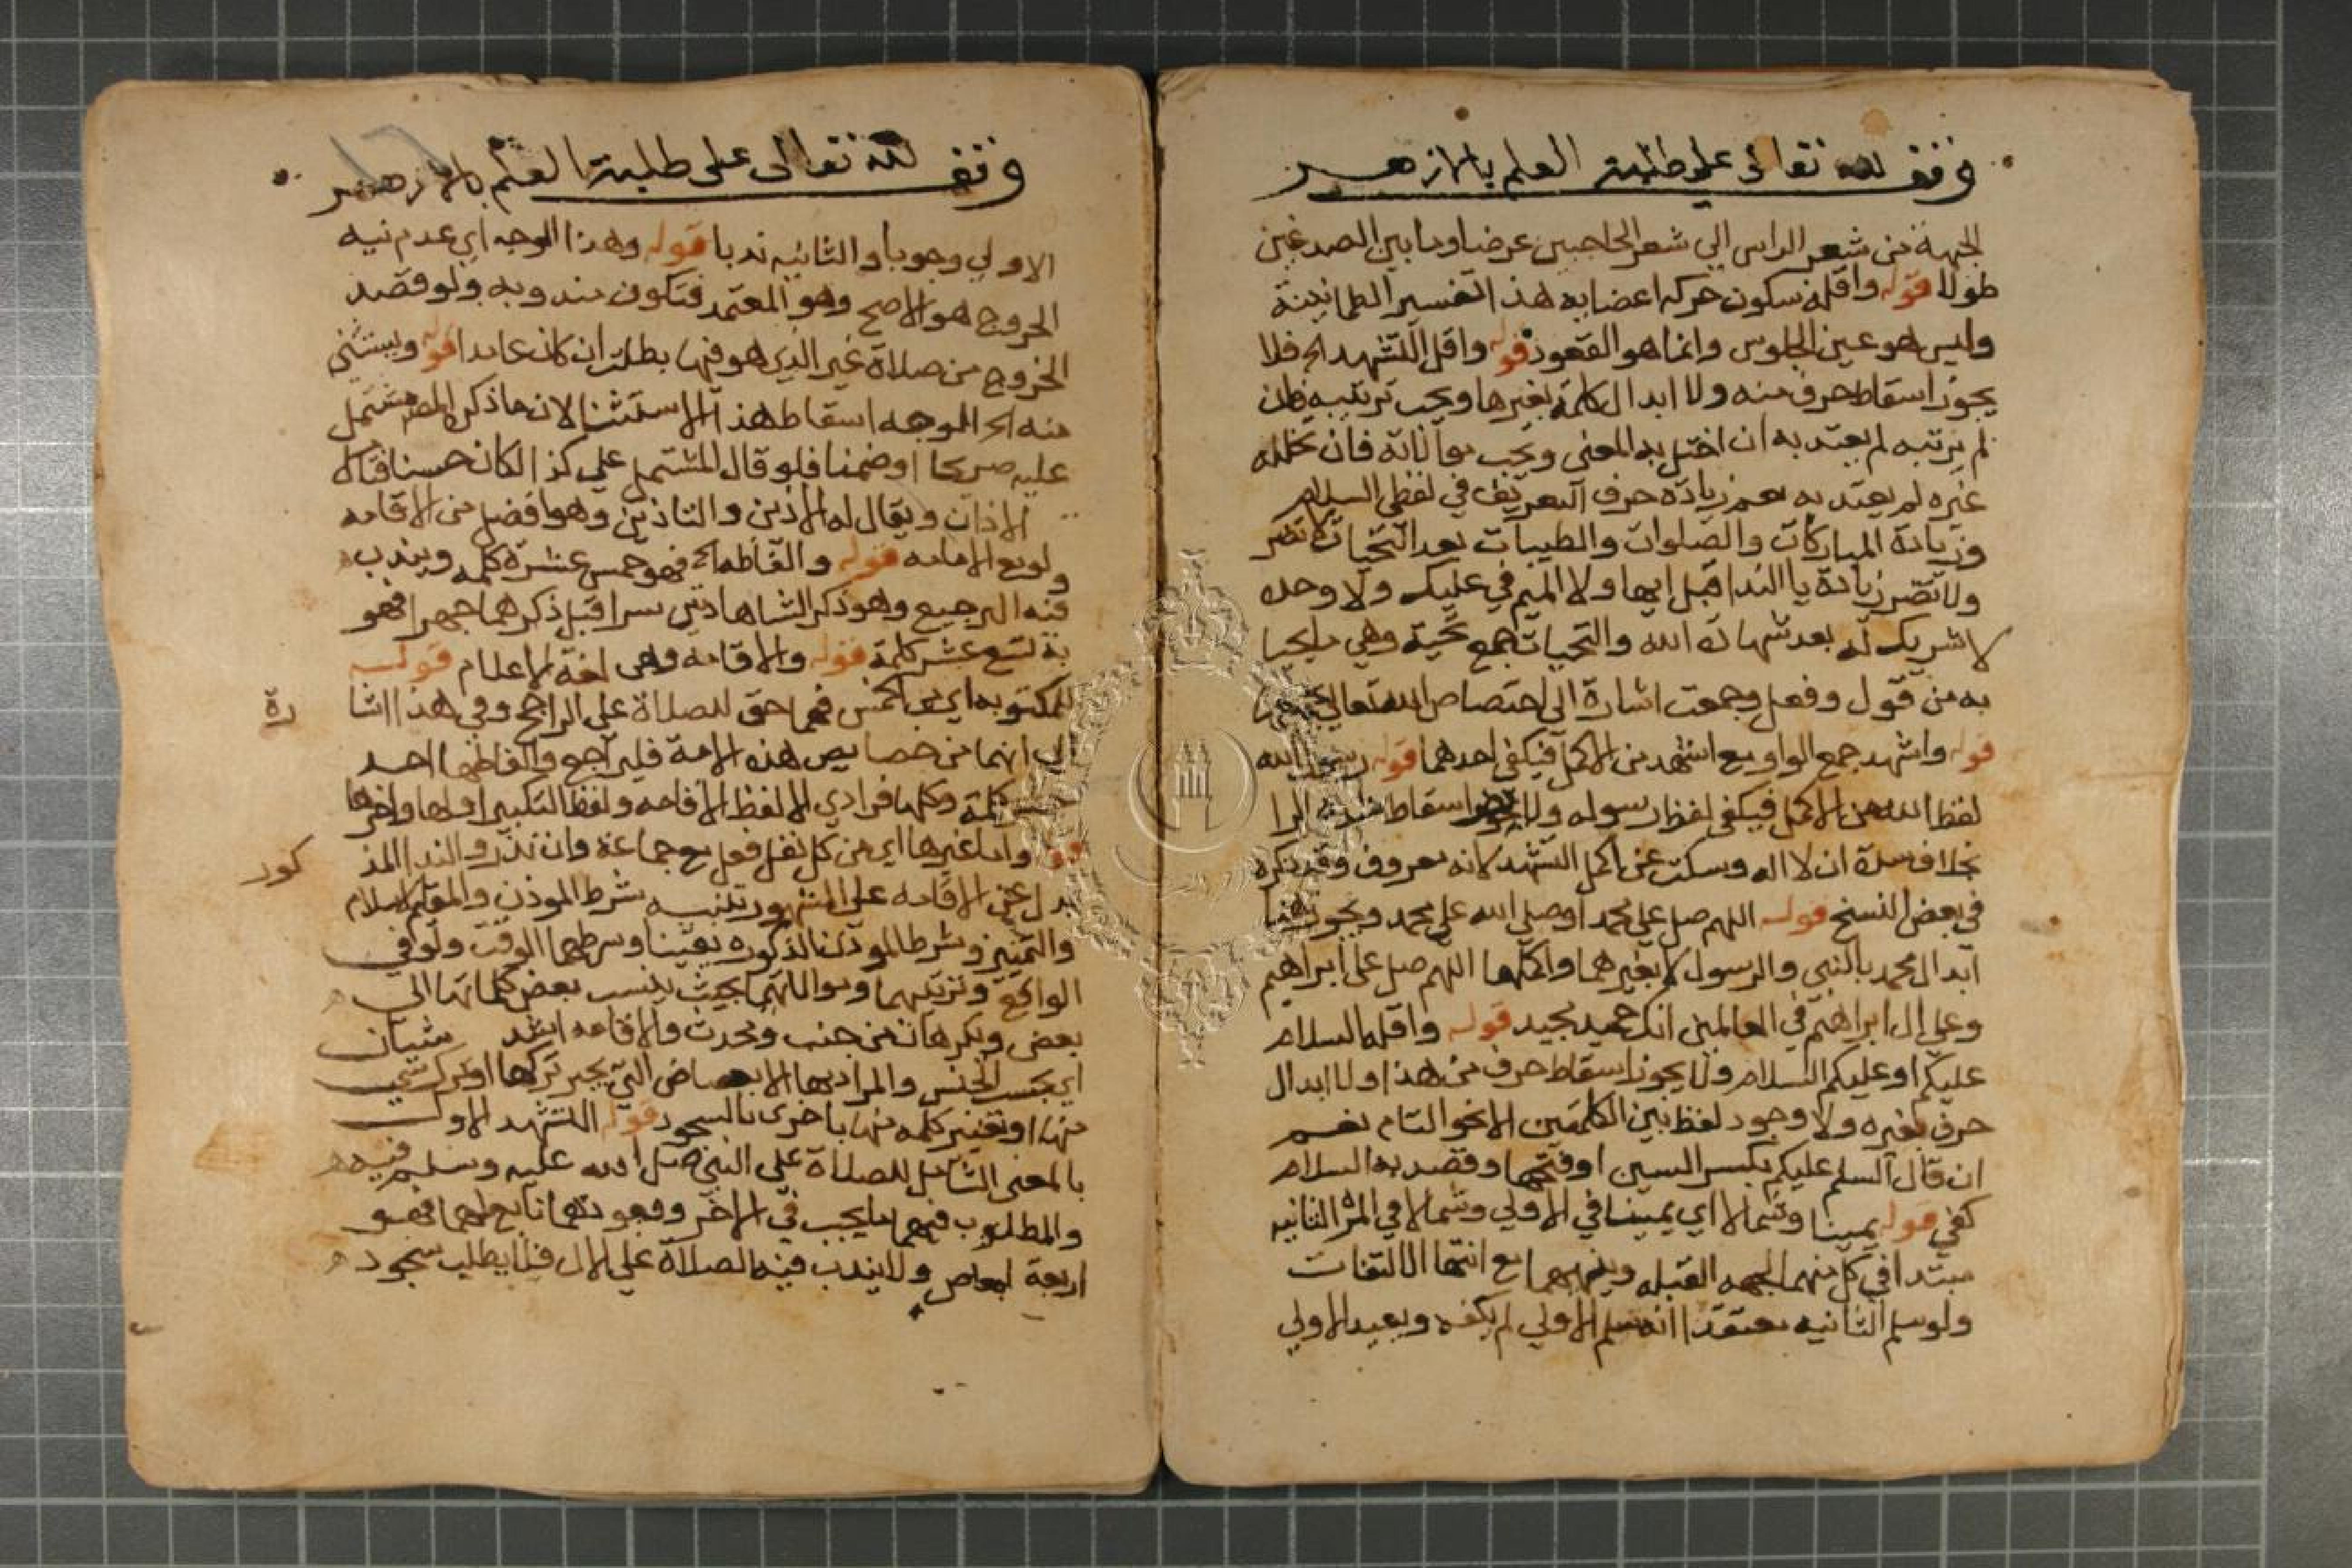 وقف لله تعالى على طلبة العلم بالازهر
الجبهة من شعر الراس الي شعر الحاجبين عرضا وما بين الصدغين
طولا قوله واقله سكون حركة اعضايه هذا تفسير الطمانينة
وليس هو عين الجلوس وانما هو القعود قوله واقل التشهد الخ فلا
يجوز اسقاط حرف منه ولا ابدال كلمة بغيرها ويجب ترتيبه فان
لم يرتبه لم يعتد به ان اختل به المعني ويجب موالاته فان تخلله
غيره لم يعتد به نعم زيادة حرف التعريف في لفظ السلام
وزيادة المباركات والصلوات والطيبات بعد التحيات لا تضر
ولا تضر زيادة يا الندا قبل ايها ولا الميم في عليك ولا وحده
لا شريك له بعد شهادة الله والتحيات جمع تحية وهي ما يحيا
به من قول وفعل وجمعت اشارة الي اختصاص الله تعالي بجميعها
قوله واشهد جمع الواو مع اشهد من الاكمل فيكفي احدهما قوله رسول الله
لفظ الله من الاكمل فيكفي لفظ رسوله ولا يضر اسقاط شدة الرا
بخلاف شدة ان لا اله وسكت عن اكمل التشهد لانه معروف وقد ذكره
في بعض النسخ قوله اللهم صل علي محمد او صلي الله علي محمد ويجوز هنا
ابدال محمد بالنبي والرسول لا بغيرهما واكملها اللهم صل علي ابراهيم
وعلي ال ابراهيم في العالمين انك حميد مجيد قوله واقله السلام
عليكم او عليكم السلام ولا يجوز اسقاط حرف من هذا ولا ابدال
حرف بغيره ولا وجود لفظ بين الكلمتين الا نحو التام نعم
ان قال السلم عليكم بكسر السين او فتحها وقصد به السلام
كفي قوله يمينا وشمالا اي يمينا في الاولي وشمالا في المرة الثانيه
مبتدا في كل منهما لجهه القبله وينهيهما مع انتها الالتفات
ولو سلم الثانيه معتقدا انه سلم الاولي لم يكفه ويعيد الاولي
وقف لله تعالى على طلبة العلم بالازهر
الاولي وجوبا والثانيه ندبا قوله وهذا الوجه اي عدم نيه
الخروج هو الاصح وهو المعتمد فتكون مندوبه ولو قصد
الخروج من صلاة غير الذي هو فيها بطلت ان كان عامدا قوله ويستثني
منه الخ الموجه اسقاط هذا الاستثنا لان ما ذكره المص مشتمل
عليه صريحا او ضمنا فلو قال المشتمل علي كذا لكان حسنا قال
الاذان ويقال له الاذين والتاذين وهو افضل من الاقامه
ولو مع الامامه قوله والفاظه الخ فهو خمس عشرة كلمه ويندب
فيه الترجيع وهو ذكر الشاهادتين سرا قبل ذكرهما جهرا فهو
به تسع عشر كلمة قوله والاقامه وهي لغة الاعلام قوله
للمكتوبه اي من الخمس فهما حق للصلاة علي الراجح وفي هذا اشا
رة
الي انهما من خصايص هذه الامة فليراجع والفاظها احد
عشر كلمة وكلها فرادي الا لفظ الاقامه ولفظ التكبير اولها واخرها
قوله واما غيرها اي من كل نفل فعل مع جماعة وان نذر والندا المذ
كور
بدل عن الاقامه علي المشهور تنبيه شرط الموذن والمقيم الاسلام
والتمييز وشرط الموذن الذكوره يقينا وشرطهما الوقت ولو في
الواقع وترتيبهما وموالاتهما بحيث ينسب بعض كلماتها الى
بعض ويكرهان من جنب ومحدث والاقامه اشد شيئان
اي بحسب الجنس والمراد بها الابعاض التي يجبر تركها او ترك شي
منها او تغيير كلمه منها باخرى بالسجود قوله التشهد الاول
بالمعني الشامل للصلاة علي النبي صلى الله عليه وسلم فيه
والمطلوب فيهما ما يجب في الاخر وقعودهما تابع لهما فهو
اربعة ابعاض ولا يندب فيه الصلاة علي الال فلا يطلب سجود